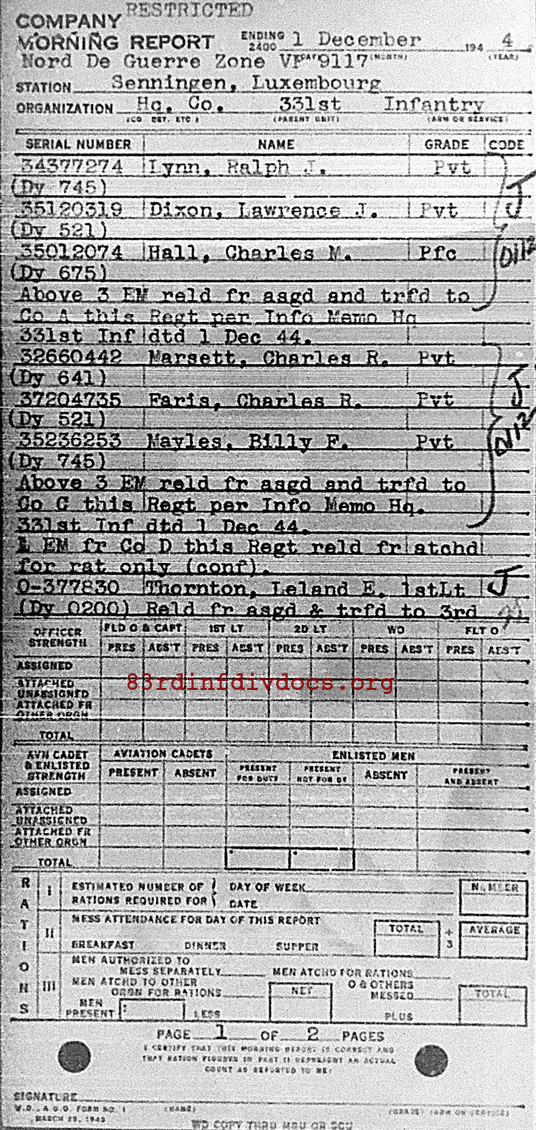 RESTRICTED
COMPANY
MORNING REPORT ENDING 2400 1 December 194 4
(DAY) (MONTH) (YEAR)
Nord De Guerre Zone VP 9117
STATION Senningen, Luxembourg
ORGANIZATION Hq. Co. 331st Infantry
(CO DET, ETC.) (PARENT UNIT) (ARM OR SERVICE)
SERIAL NUMBER NAME GRADE CODE
34377274 Lynn, Ralph J. Pvt
(Dy 745)
35120319 Dixon, Lawrence J. Pvt J
(Dy 521)
35012074 Hall, Charles M. Pfc
(Dy 675)
Above 3 EM reld fr asgd and trfd to
Co A this Regt per Info Memo Hq
331st Inf dtd 1 Dec 44.
32660442 Marsett, Charles R. Pvt
(Dy 641) J
37204735 Faris, Charles R. Pvt
(Dy 521)
35236253 Mayles, Billy F. Pvt
(Dy 745)
Above 3 EM reld fr asgd and trfd to
Co C this Regt per Info Memo Hq.
331st Inf dtd 1 Dec 44.
1 EM fr Co D this Regt reld fr atchd
for rat only (conf).
O-377830 Thornton, Leland E. 1stLt J
(Dy 0200) Reld fr asgd & trfd to 3rd
OFFICER STRENGTH FLD O & CAPT 1ST LT 2D LT WO FLT O
PRES ABS'T PRES ABS'T PRES ABS'T PRES ABS'T PRES ABS'T
ASSIGNED
ATTACHED UNASSIGNED
83rdinfdivdocs.org
ATTACHED FR OTHER ORGN
TOTAL
AVN CADET & ENLISTED STRENGTH AVIATION CADETS ENLISTED MEN
PRESENT ABSENT PRESENT FOR DUTY PRESENT NOT FOR DY ABSENT PRESENT AND ABSENT
ASSIGNED
ATTACHED UNASSIGNED
ATTACHED FR OTHER ORGN
TOTAL
RATIONS
I ESTIMATED NUMBER OF RATIONS REQUIRED FOR DAY OF WEEK DATE NUMBER
II MESS ATTENDANCE FOR DAY OF THIS REPORT TOTAL ÷ 3 AVERAGE
BREAKFAST DINNER SUPPER
III MEN AUTHORIZED TO MESS SEPARATELY MEN ATCHD FOR RATIONS
MEN ATCHD TO OTHER ORGN FOR RATIONS NET O & OTHERS MESSED TOTAL
MEN PRESENT LESS PLUS
PAGE 1 OF 2 PAGES
I CERTIFY THAT THIS MORNING REPORT IS CORRECT AND
THAT RATION FIGURES IN PART II REPRESENT AN ACTUAL
COUNT AS REPORTED TO ME:
SIGNATURE
(NAME) (GRADE) (ARM OR SERVICE)
W.D., A.G.O. FORM NO. 1
MARCH 25, 1943
WD COPY THRU MRU OR SCU